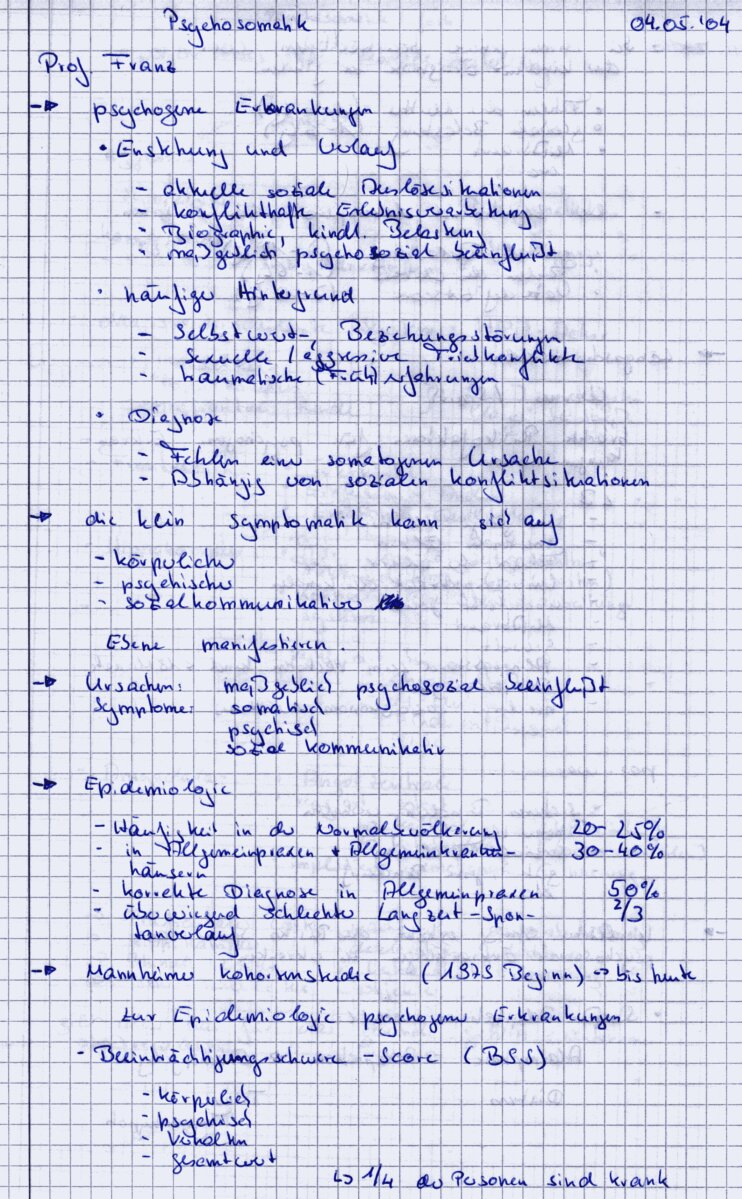 Psychosomatik 04.05.'04
Prof Franz
→ psychogene Erkrankungen
• Enstehung und Verlauf
- aktuelle soziale Auslösesituationen
- konflikthafte Erlebnisverarbeitung
- Biographie, kindl. Belastung
- maßgeblich psychosozial beeinflußt
• häufiger Hintergrund
- Selbstwert-, Beziehungsstörungen
- Sexuelle / aggressive Triebkonflikte
- traumatische (Früh) erfahrungen
• Diagnose
- Fehlen einer somatogenen Ursache
- Abhängig von sozialen Konfliktsituationen
→ die klin Symptomatik kann sich auf
- körperlicher
- psychischer
- sozialkommunikativer
Ebene manifestieren.
→ Ursachen: maßgeblich psychosozial beeinflußt
Symptome: somatisch
psychisch
sozial kommunikativ
→ Epidemiologie
- Häufigkeit in der Normalbevölkerung 20-25%
- in Allgemeinpraxen + Allgemeinkranken- 30-40%
häusern
- korrekte Diagnose in Allgemeinpraxen 50%
- überwiegend schlechter Langzeit-Spon- 2/3
tanverlauf
→ Mannheimer Kohortenstudie (1975 Beginn) → bis heute
zur Epidemiologie psychogener Erkrankungen
- Beeinträchtigungsschwere - Score (BSS)
- körperlich
- psychisch
- Verhalten
- gesamtwert
↳ 1/4 der Personen sind krank